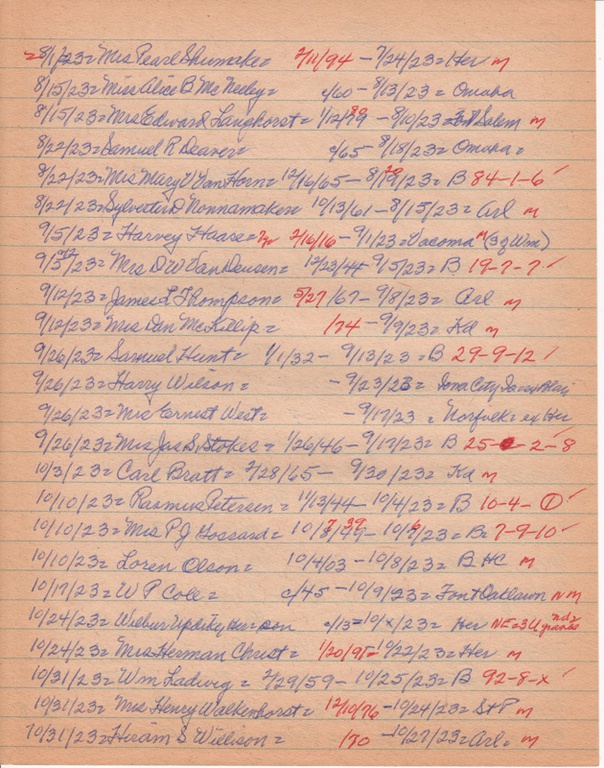 8/1/23 = Mrs Pearl Shumake = 2/11/94 - 7/24/23 = Her M
8/15/23 = Miss Alice B McNeeley = c/60 - 8/13/23 = Omaha
8/15/23 = Mrs Edward Langhorst = 1/12/79 80 - 8/10/23 = Salem M
8/22/23 = Samuel R Deaver = c/65 - 8/18/23 = Omaha =
8/22/23 = Mrs Mary V Van Horn = 12/16/65 - 8/19/23 = B 84-1-6 ✓
8/22/23 = Sylvester D Nonnamaker = 10/13/61 - 8/15/23 = Arl M
9/5/23 = Harvey Haase = 2/16/16 - 9/1/23 = Tacoma M (3 g Wm)
9/5/23 = Mrs D W Van Deusen = 12/23/44 - 9/5/23 = B 19-7-7 ✓
9/12/23 = James L Thompson = 5/27/67 - 9/8/23 = Arl M
9/12/23 = Mrs Dan McKillip = 1/74 - 9/9/23 = Kd M
9/26/23 = Samuel Hunt = 1/1/32 - 9/13/23 = B 29-9-12 ✓
9/26/23 = Harry Wilson = - 9/23/23 = Iowa City Ia ex Blair
9/26/23 = Mrs Ernest West = - 9/17/23 = Norfolk = ex Her
9/26/23 = Mrs Jas S Stokes = 1/26/46 - 9/17/23 = B 25-2-8 ✓
10/3/23 = Carl Bratt = 2/28/65 - 9/30/23 = Kd M
10/10/23 = Rasmus Petersen = 11/13/44 - 10/4/23 = B 10-4-1 ✓
10/10/23 = Mrs P J Gossard = 10/8/49 7 39 - 10/6/23 = B = 7-9-10 ✓
10/10/23 = Loren Olson = 10/4/03 - 10/8/23 = B HC M
10/17/23 = W P Cole = c/45 - 10/9/23 = Font Oaklawn N M
10/24/23 = Wilbur Updike Her = son c/13 = 10/x/23 = Her NE = 34
10/24/23 = Mrs Herman Christ = 1/20/95 - 10/22/23 = Her M
10/31/23 = Wm Ladwig = 2/29/59 - 10/25/23 = B 92-8-x ✓
10/31/23 = Mrs Henry Walkenhorst = 12/10/76 - 10/24/23 = St P M
10/31/23 = Hiram S Willison = 1/70 - 10/27/23 = Arl = M